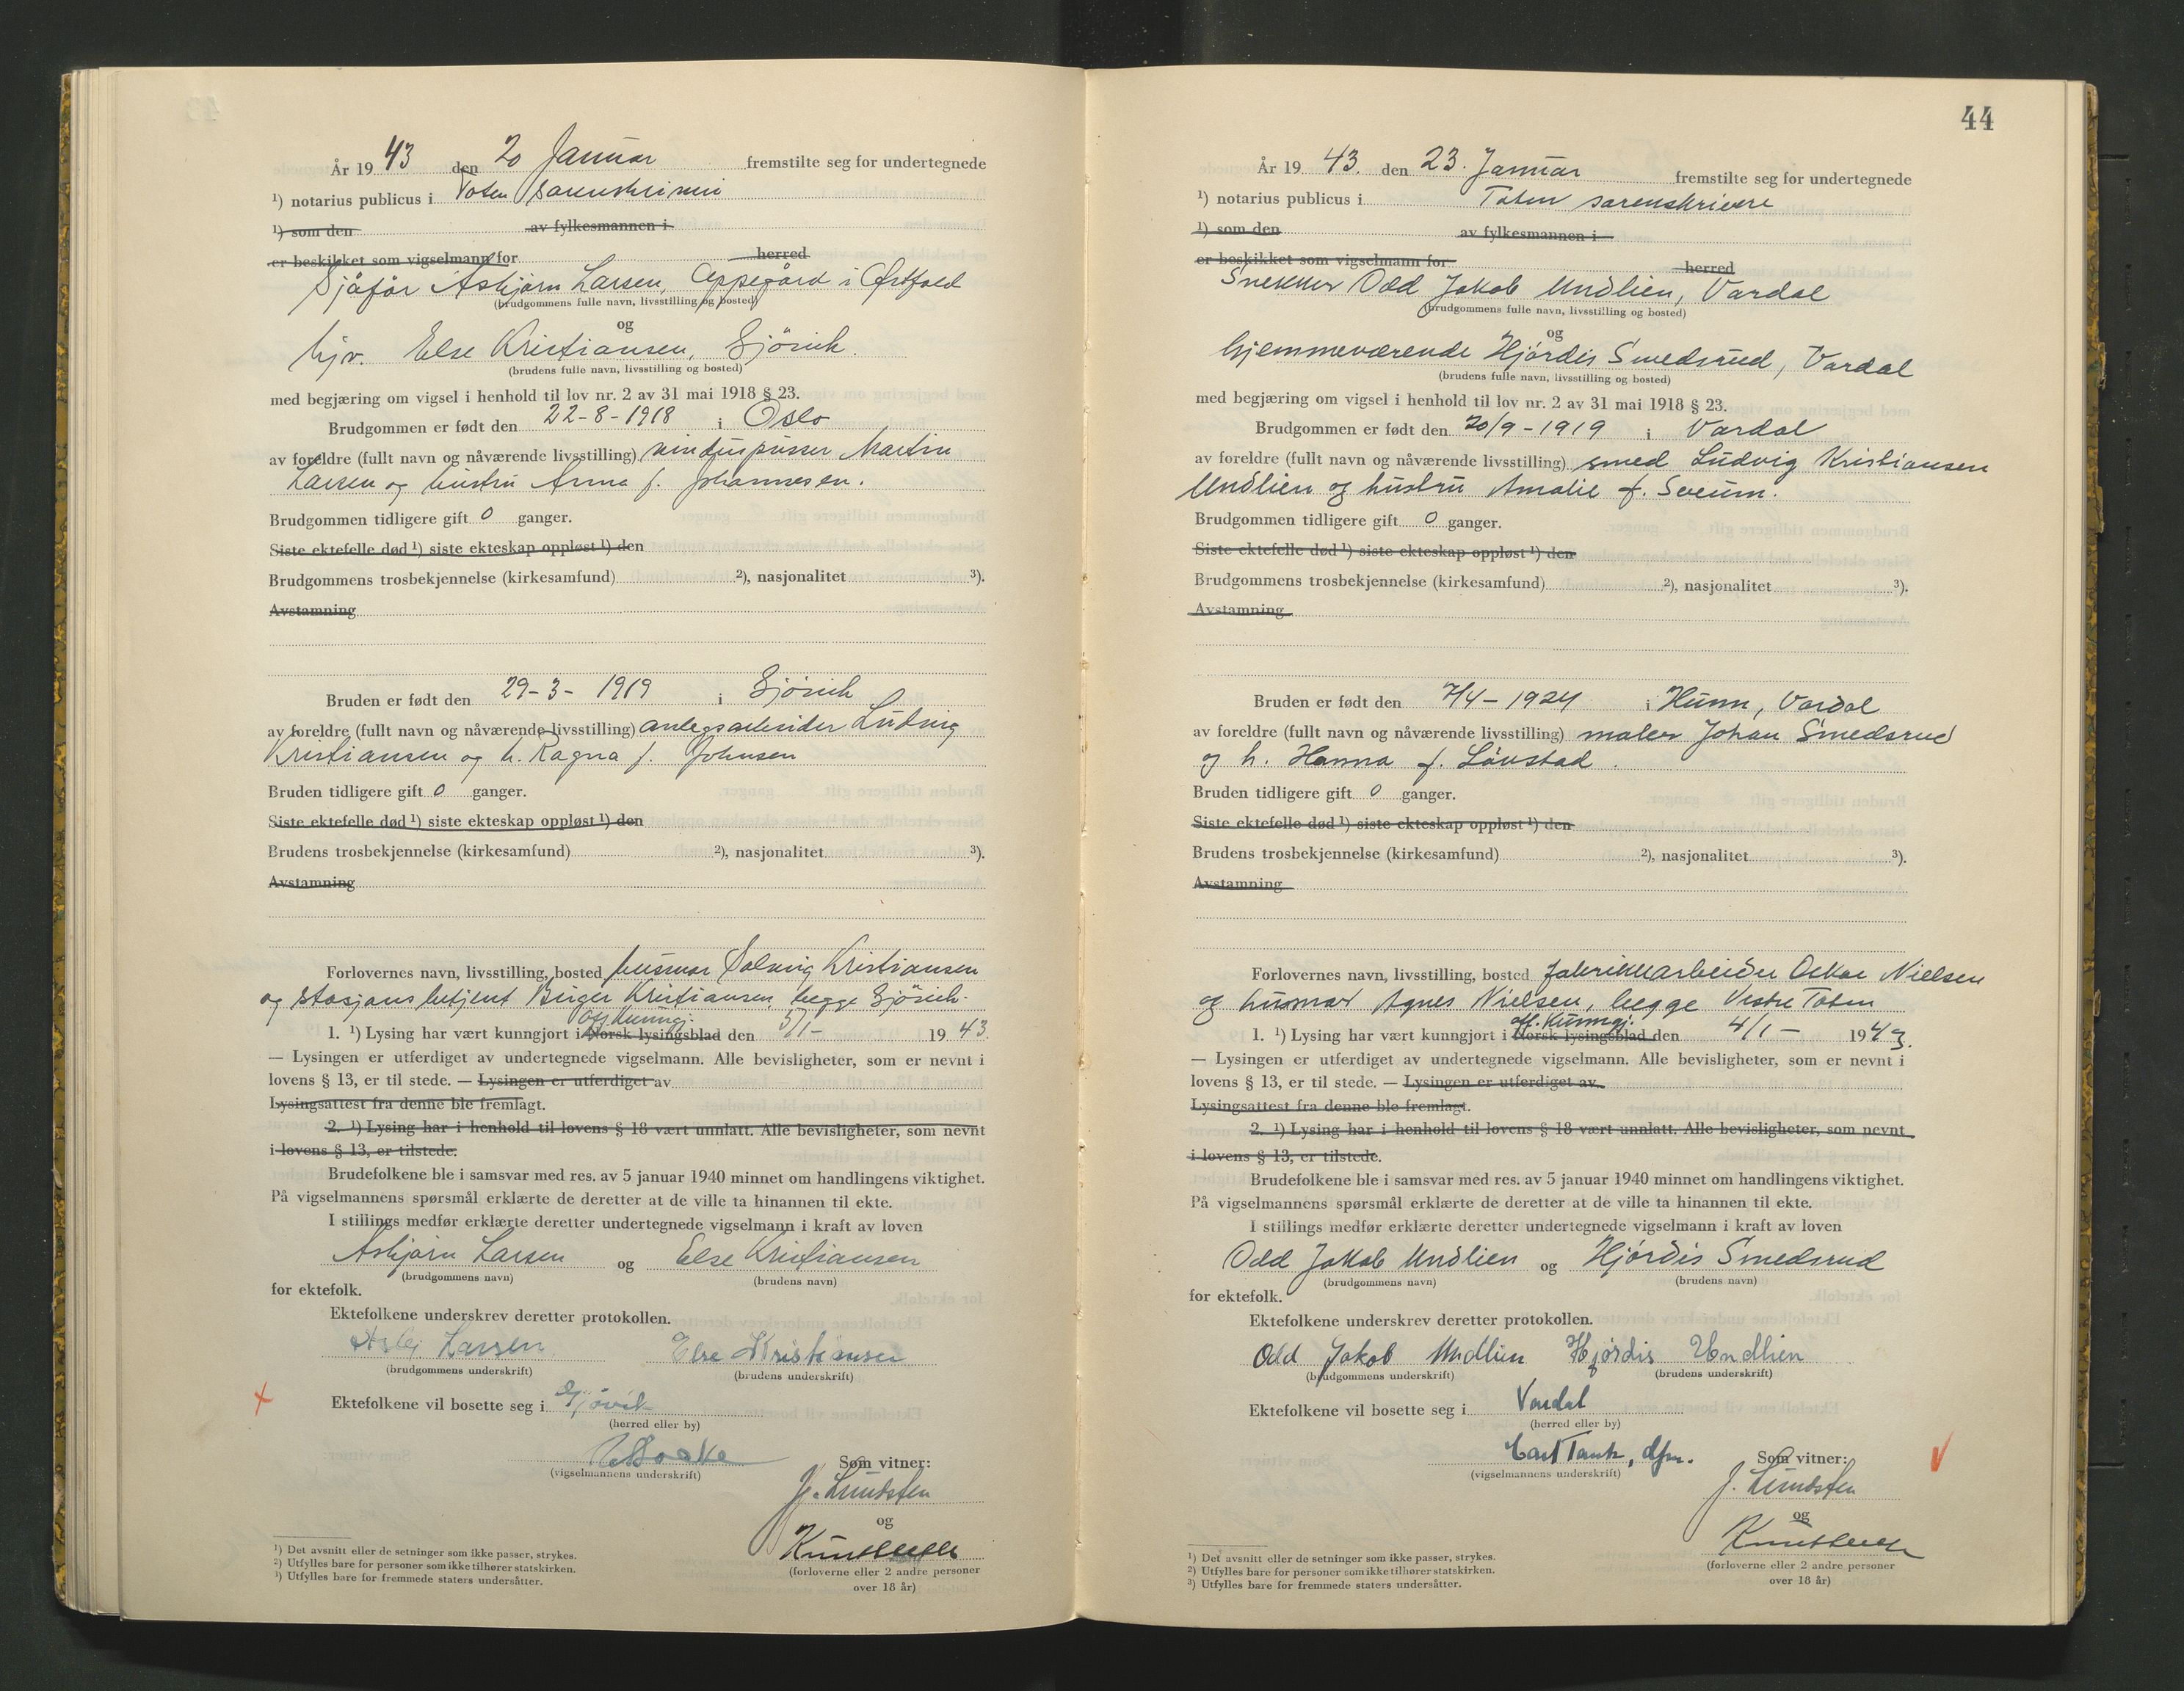 År 19 43 den 20 Januar fremstilte seg for undertegnede
¹) notarius publicus i Toten sorenskriveri
¹) som den av fylkesmannen i
er beskikket som vigselmann for herred
Sjåfør Asbjørn Larsen, Oppegård i Østfold
(brudgommens fulle navn, livsstilling og bosted)
og
hjv. Else Kristiansen, Gjøvik.
(brudens fulle navn, livsstilling og bosted)
med begjæring om vigsel i henhold til lov nr. 2 av 31 mai 1918 § 23.
Brudgommen er født den 22-8-1918 i Oslo
av foreldre (fullt navn og nåværende livsstilling) vinduspusser Martin
Larsen og hustru Anna f. Johannesen.
Brudgommen tidligere gift 0 ganger.
Siste ektefelle død ¹) siste ekteskap oppløst ¹) den
Brudgommens trosbekjennelse (kirkesamfund) ²), nasjonalitet ³).
Avstamning
Bruden er født den 29-3-1919 i Gjøvik
av foreldre (fullt navn og nåværende livsstilling) anlegsarbeider Ludvig
Kristiansen og h. Ragna f. Johnsen
Bruden tidligere gift 0 ganger.
Siste ektefelle død ¹) siste ekteskap oppløst ¹) den
Brudens trosbekjennelse (kirkesamfund) ²), nasjonalitet ³).
Avstamning
Forlovernes navn, livsstilling, bosted husmor Solveig Kristiansen
og stasjonsbetjent Birger Kristiansen, begge Gjøvik.
Off. kunngj.
1. ¹) Lysing har vært kunngjort i Norsk lysingsblad den 5/1- 19 43.
— Lysingen er utferdiget av undertegnede vigselmann. Alle bevisligheter, som er nevnt i
lovens § 13, er til stede. — Lysingen er utferdiget av
Lysingsattest fra denne ble fremlagt.
2. ¹) Lysing har i henhold til lovens § 18 vært unnlatt. Alle bevisligheter, som nevnt
i lovens § 13, er tilstede.
Brudefolkene ble i samsvar med res. av 5 januar 1940 minnet om handlingens viktighet.
På vigselmannens spørsmål erklærte de deretter at de ville ta hinannen til ekte.
I stillings medfør erklærte deretter undertegnede vigselmann i kraft av loven
Asbjørn Larsen og Else Kristiansen
(brudgommens navn) (brudens navn)
for ektefolk.
Ektefolkene underskrev deretter protokollen.
Asbj Larsen Else Kristiansen
(brudgommens underskrift) (brudens underskrift)
Ektefolkene vil bosette seg i Gjøvik
(herred eller by)
(vigselmannens underskrift)
Som vitner:
J. Lundsten
og
(forloverne eller 2 andre personer
over 18 år)
¹) Det avsnitt eller de setninger som ikke passer, strykes.
²) Utfylles bare for personer som ikke tilhører statskirken.
³) Utfylles bare for fremmede staters undersåtter.
44
År 19 43. den 23. Januar fremstilte seg for undertegnede
¹) notarius publicus i Toten sorenskriveri
¹) som den av fylkesmannen i
er beskikket som vigselmann for herred
Snekker Odd Jakob Undlien, Vardal
(brudgommens fulle navn, livsstilling og bosted)
og
hjemmeværende Hjördis Smedsrud, Vardal
(brudens fulle navn, livsstilling og bosted)
med begjæring om vigsel i henhold til lov nr. 2 av 31 mai 1918 § 23.
Brudgommen er født den 20/9-1919 i Vardal
av foreldre (fullt navn og nåværende livsstilling) smed Ludvig Kristiansen
Undlien og hustru Amalie f. Sveum.
Brudgommen tidligere gift 0 ganger.
Siste ektefelle død ¹) siste ekteskap oppløst ¹) den
Brudgommens trosbekjennelse (kirkesamfund) ²), nasjonalitet ³).
Avstamning
Bruden er født den 7/4-1924 i Hunn, Vardal
av foreldre (fullt navn og nåværende livsstilling) maler Johan Smedsrud
og h. Hanna f. Lönstad.
Bruden tidligere gift 0 ganger.
Siste ektefelle død ¹) siste ekteskap oppløst ¹) den
Brudens trosbekjennelse (kirkesamfund) ²), nasjonalitet ³).
Avstamning
Forlovernes navn, livsstilling, bosted fabrikkarbeider Oskar Nielsen
og husmor Agnes Nielsen, begge Vestre Toten
off. kunngj.
1. ¹) Lysing har vært kunngjort i Norsk lysingsblad den 4/1- 1943.
— Lysingen er utferdiget av undertegnede vigselmann. Alle bevisligheter, som er nevnt i
lovens § 13, er til stede. — Lysingen er utferdiget av
Lysingsattest fra denne ble fremlagt.
2. ¹) Lysing har i henhold til lovens § 18 vært unnlatt. Alle bevisligheter, som nevnt
i lovens § 13, er tilstede.
Brudefolkene ble i samsvar med res. av 5 januar 1940 minnet om handlingens viktighet.
På vigselmannens spørsmål erklærte de deretter at de ville ta hinannen til ekte.
I stillings medfør erklærte deretter undertegnede vigselmann i kraft av loven
Odd Jakob Undlien og Hjördis Smedsrud
(brudgommens navn) (brudens navn)
for ektefolk.
Ektefolkene underskrev deretter protokollen.
Odd Jakob Undlien Hjördis Undlien
(brudgommens underskrift) (brudens underskrift)
Ektefolkene vil bosette seg i Vardal
(herred eller by)
Carl Tank, dfm.
(vigselmannens underskrift)
Som vitner:
J. Lundsten
og
(forloverne eller 2 andre personer
over 18 år)
¹) Det avsnitt eller de setninger som ikke passer, strykes.
²) Utfylles bare for personer som ikke tilhører statskirken.
³) Utfylles bare for fremmede staters undersåtter.